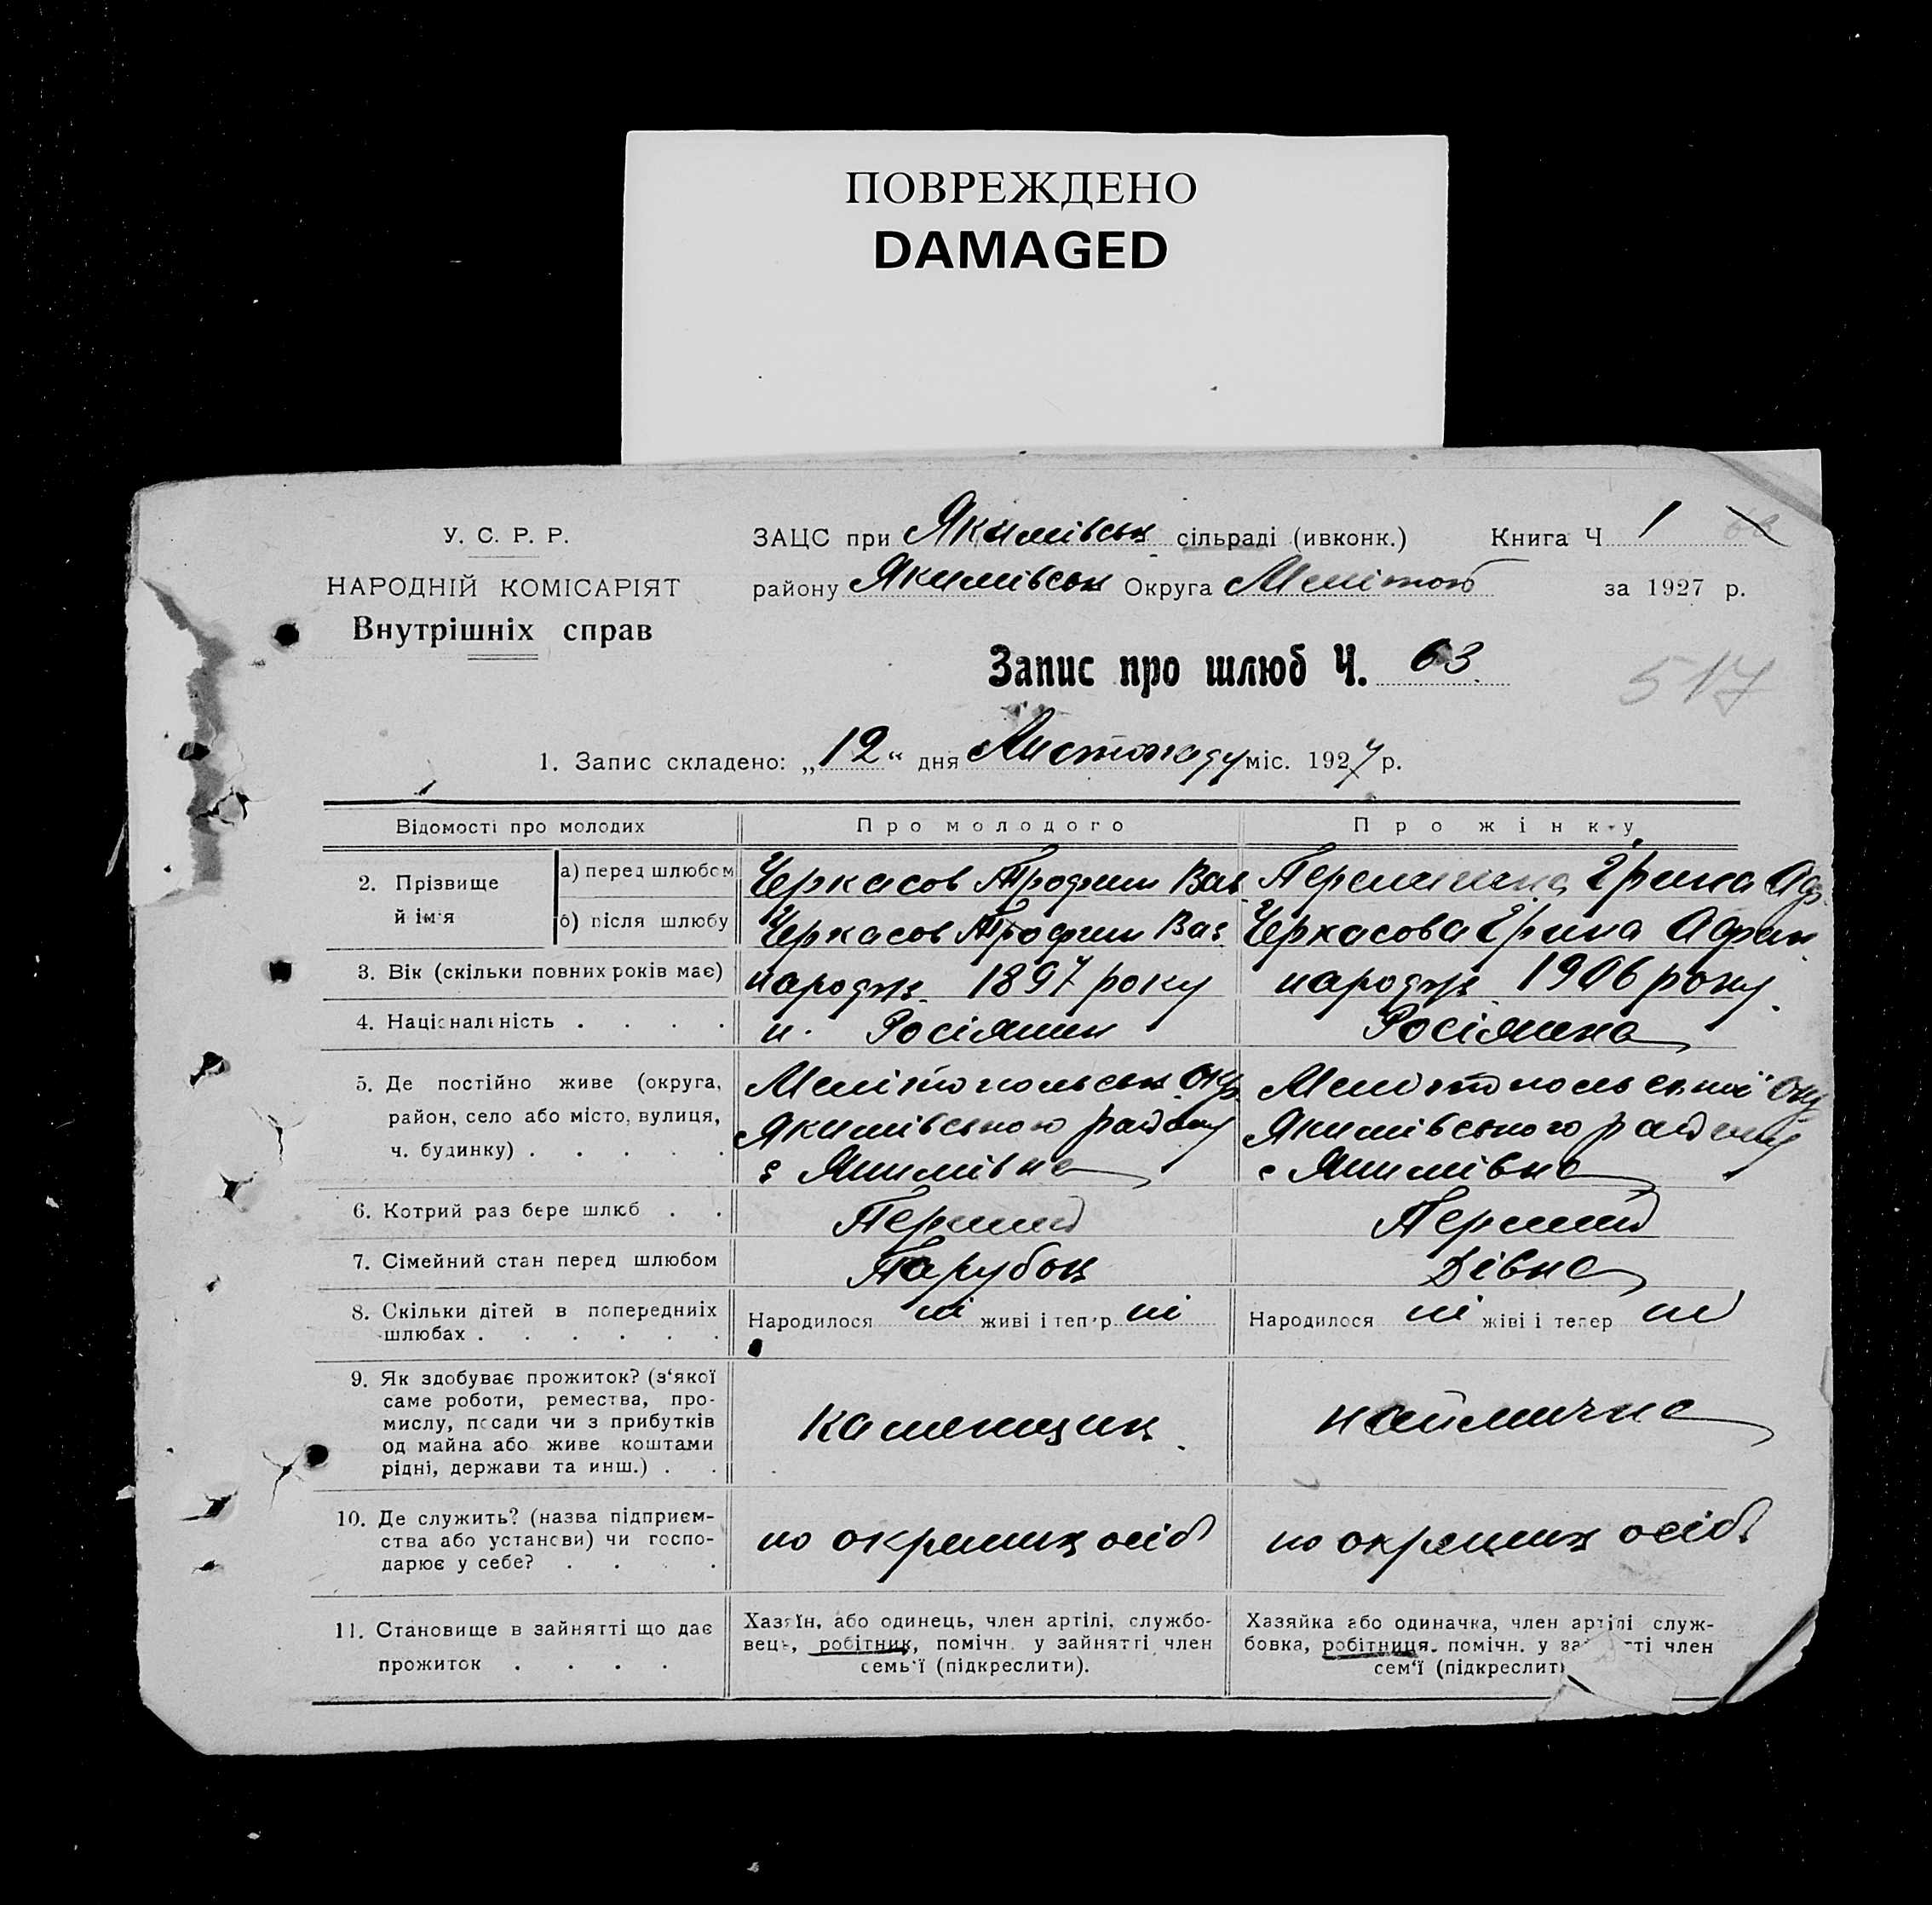 ПОВРЕЖДЕНО
DAMAGED
У. С. Р. Р.
НАРОДНІЙ КОМІСАРІЯТ
Внутрішніх справ
ЗАЦС при Якимівськ сільраді (ивконк.) Книга Ч 1
району Якимівськ Округа Мелітоп за 1927 р.
Запис про шлюб Ч. 63
517
1. Запис складено: „12“ дня Листопаду міс. 1927 р.
Відомості про молодих
Про молодого
Про жінку
2. Прізвище й ім'я
а) перед шлюбом
Черкасов Трофим Вас
Ірина
б) після шлюбу
Черкасов Трофим Вас
Черкасова Ірина
3. Вік (скільки повних років має)
народж. 1897 року
народж 1906 року
4. Національність . . . .
н. Росіянин
Росіянка
5. Де постійно живе (округа,
район, село або місто, вулиця,
ч. будинку) . . . . .
Мелітопольськ. окр.
Якимівського району
с Якимівка
Мелітопольської Окр
Якимівського району
с Якимівка
6. Котрий раз бере шлюб . .
Перший
Перший
7. Сімейний стан перед шлюбом
Парубок
Дівка
8. Скільки дітей в попередниіх
шлюбах . . . . . .
Народилося ні живі і тепер ні
Народилося ні жіві і тепер ні
9. Як здобуває прожиток? (з‘якої
саме роботи, ремества, про-
мислу, посади чи з прибутків
од майна або живе коштами
рідні, держави та инш.) . .
каменщик.
наймичка
10. Де служить? (назва підприєм-
ства або установи) чи госпо-
дарює у себе? . . . .
по окремих осіб
по окремих осіб
11. Становище в зайнятті що дає
прожиток . . . .
Хазяїн, або одинець, член артілі, службо-
вець, робітник, помічн. у зайнятті член
семь'ї (підкреслити).
Хазяйка або одиначка, член артілі служ-
бовка, робітниця. помічн. у за ті член
сем‘ї (підкреслит